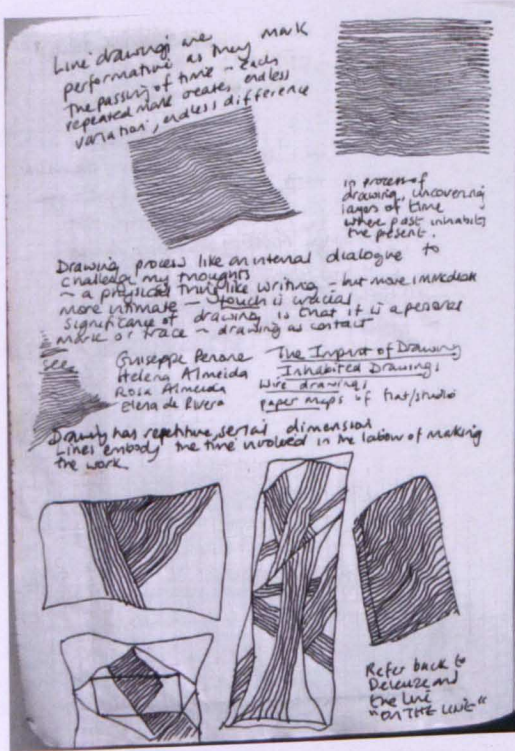 Line drawings are mark
performative as they
The passing of time - each
repeated mark creates endless
variation, endless difference
in process of
drawing, uncovering
layers of time
where past inhabits
the present.
Drawing process like an internal dialogue to
challenge my thoughts
- a physical thing like writing - but more immediate
more intimate - touch is crucial
Significance of drawing is that it is a personal
mark or trace - drawing as contact
see
Guiseppe Penone The Input of Drawing
Helena Almeida Inhabited Drawings
Rosa Almeida wire drawings
Elena de Rivera paper maps of flat/studio
Drawing has repetitive, serial dimension
Lines embody the time involved in the labour of making
the work.
Refer back to
Deleuze and
the line
"ON THE LINE"